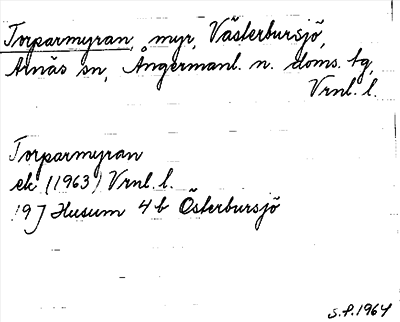 Torparmyran, myr, Västerbursjö,
Arnäs sn, Ångermanl. n. doms. tg,
Vrnl. l.
Torparmyran
ek (1963) Vrnl. l.
19 J Husum 4 b Österbursjö
S.P. 1964